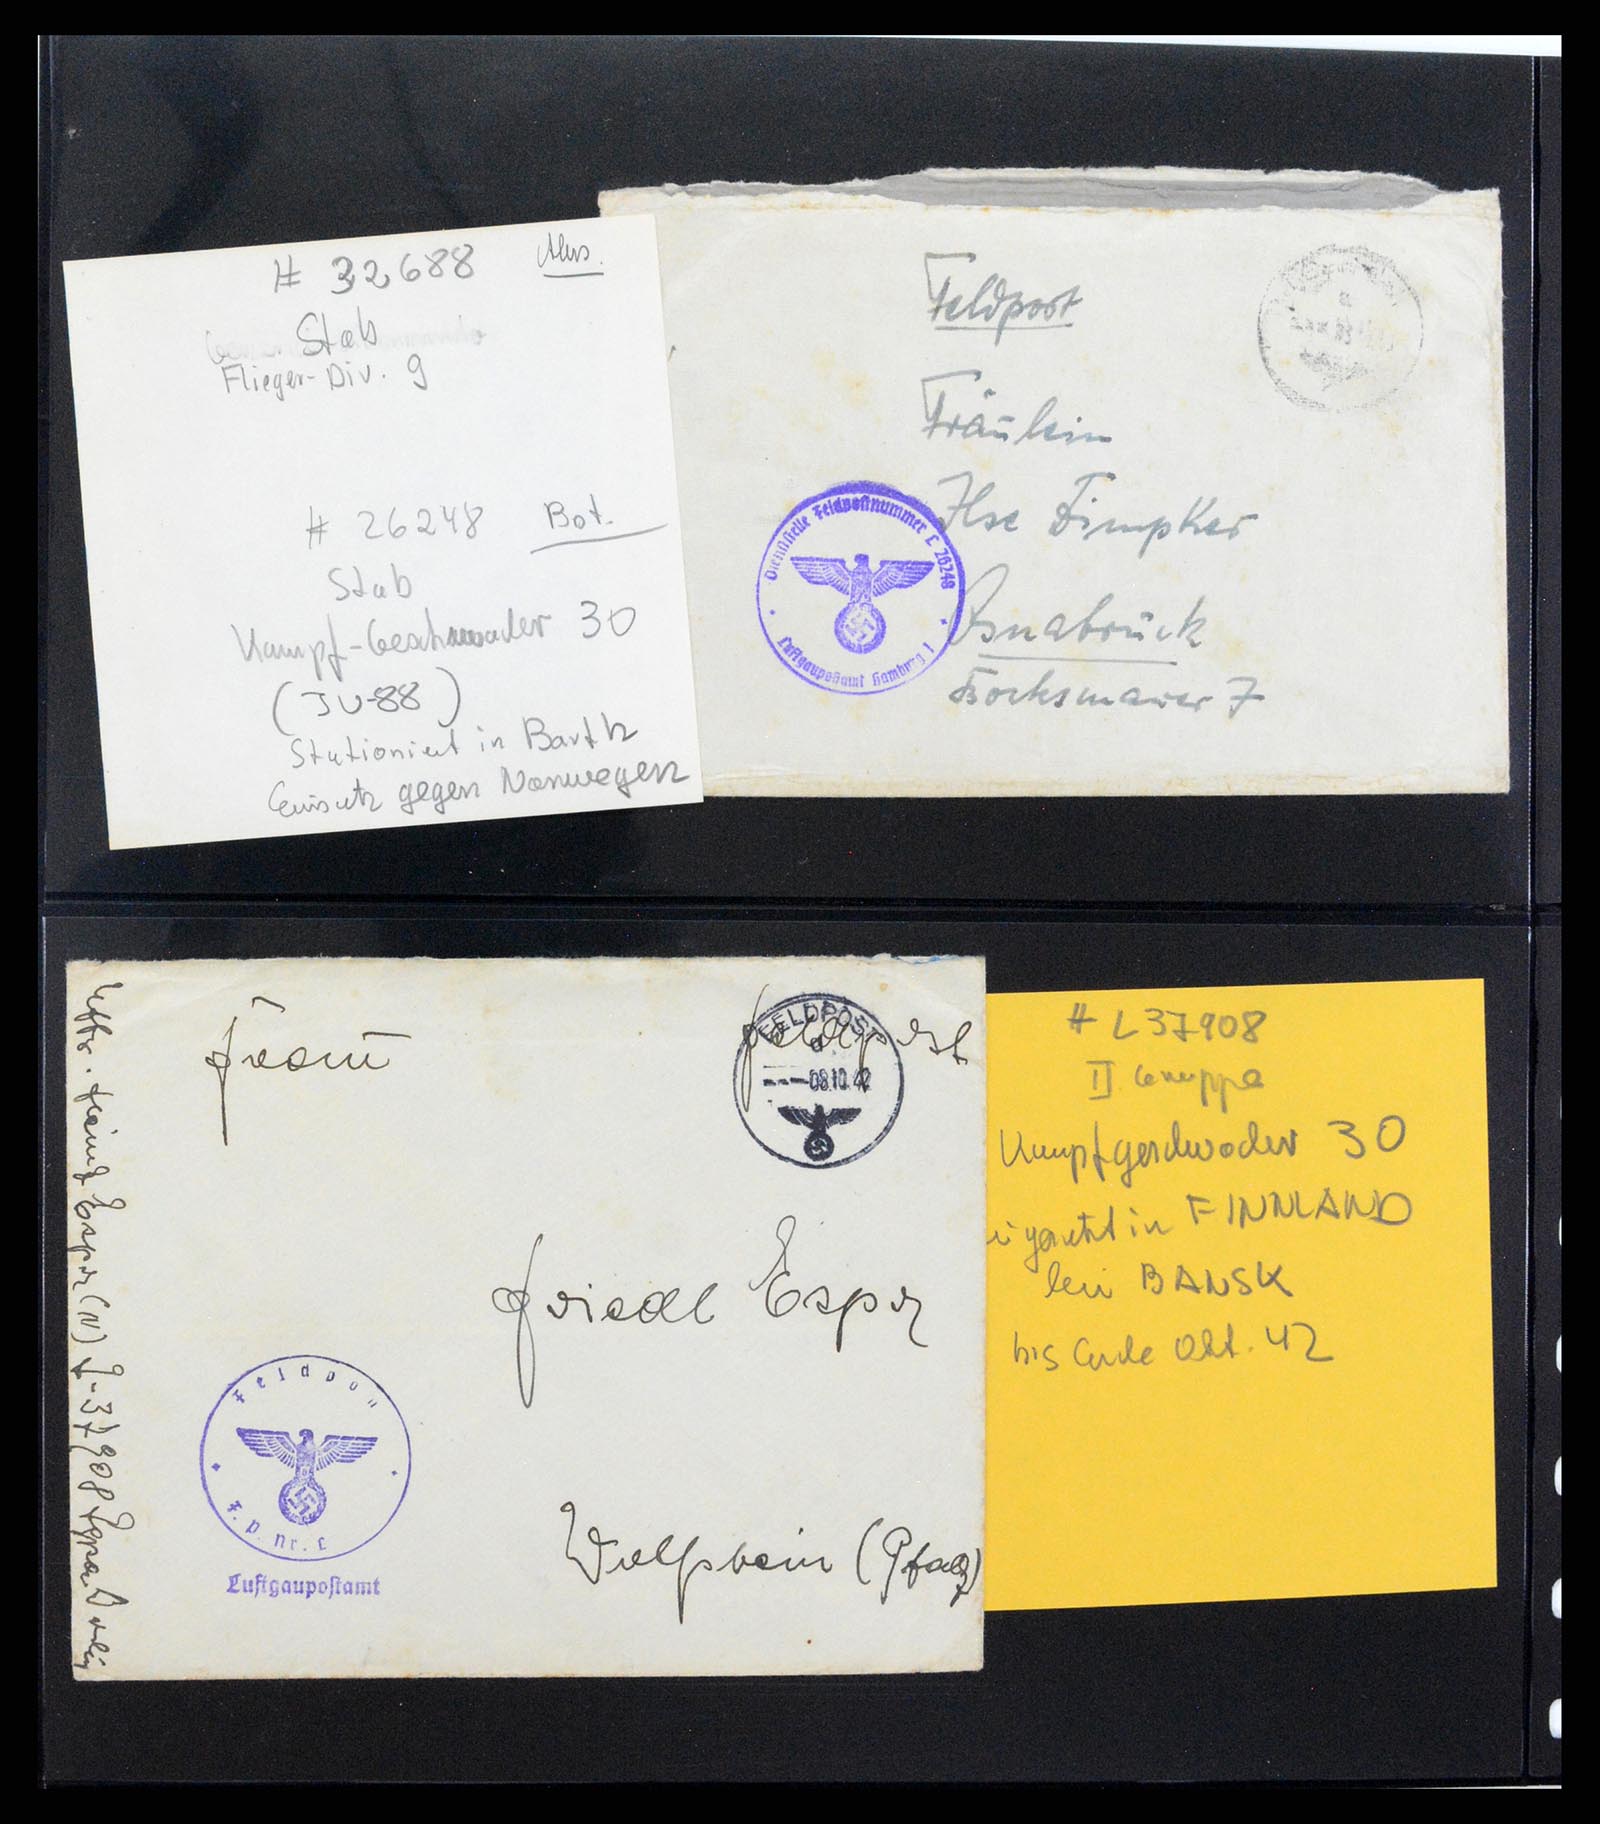 # 32688
Stab
Flieger-Div. 9
# 26248 Bot.
Stab
Kampf-Geschwader 30
(JU-88)
Stationiert in Barth
Einsatz gegen Norwegen
Feldpost
Fräulein
Ilse Timpker
Osnabrück
Dienststelle Feldpostnummer L 26248
Luftgaupostamt Hamburg 1
Frau
Feldpost
FELDPOST
d
08.10.42
Friedl Esper
Wolfstein (Pfalz)
Feldpost
F.P. Nr. L
Luftgaupostamt
Uffz. Heinz Esper (N) L-37908 Lgpa. Berlin
# L37908
II Gruppe
Kampfgeschwader 30
eingesetzt in FINNLAND
bei BANSK
bis Ende Okt. 42